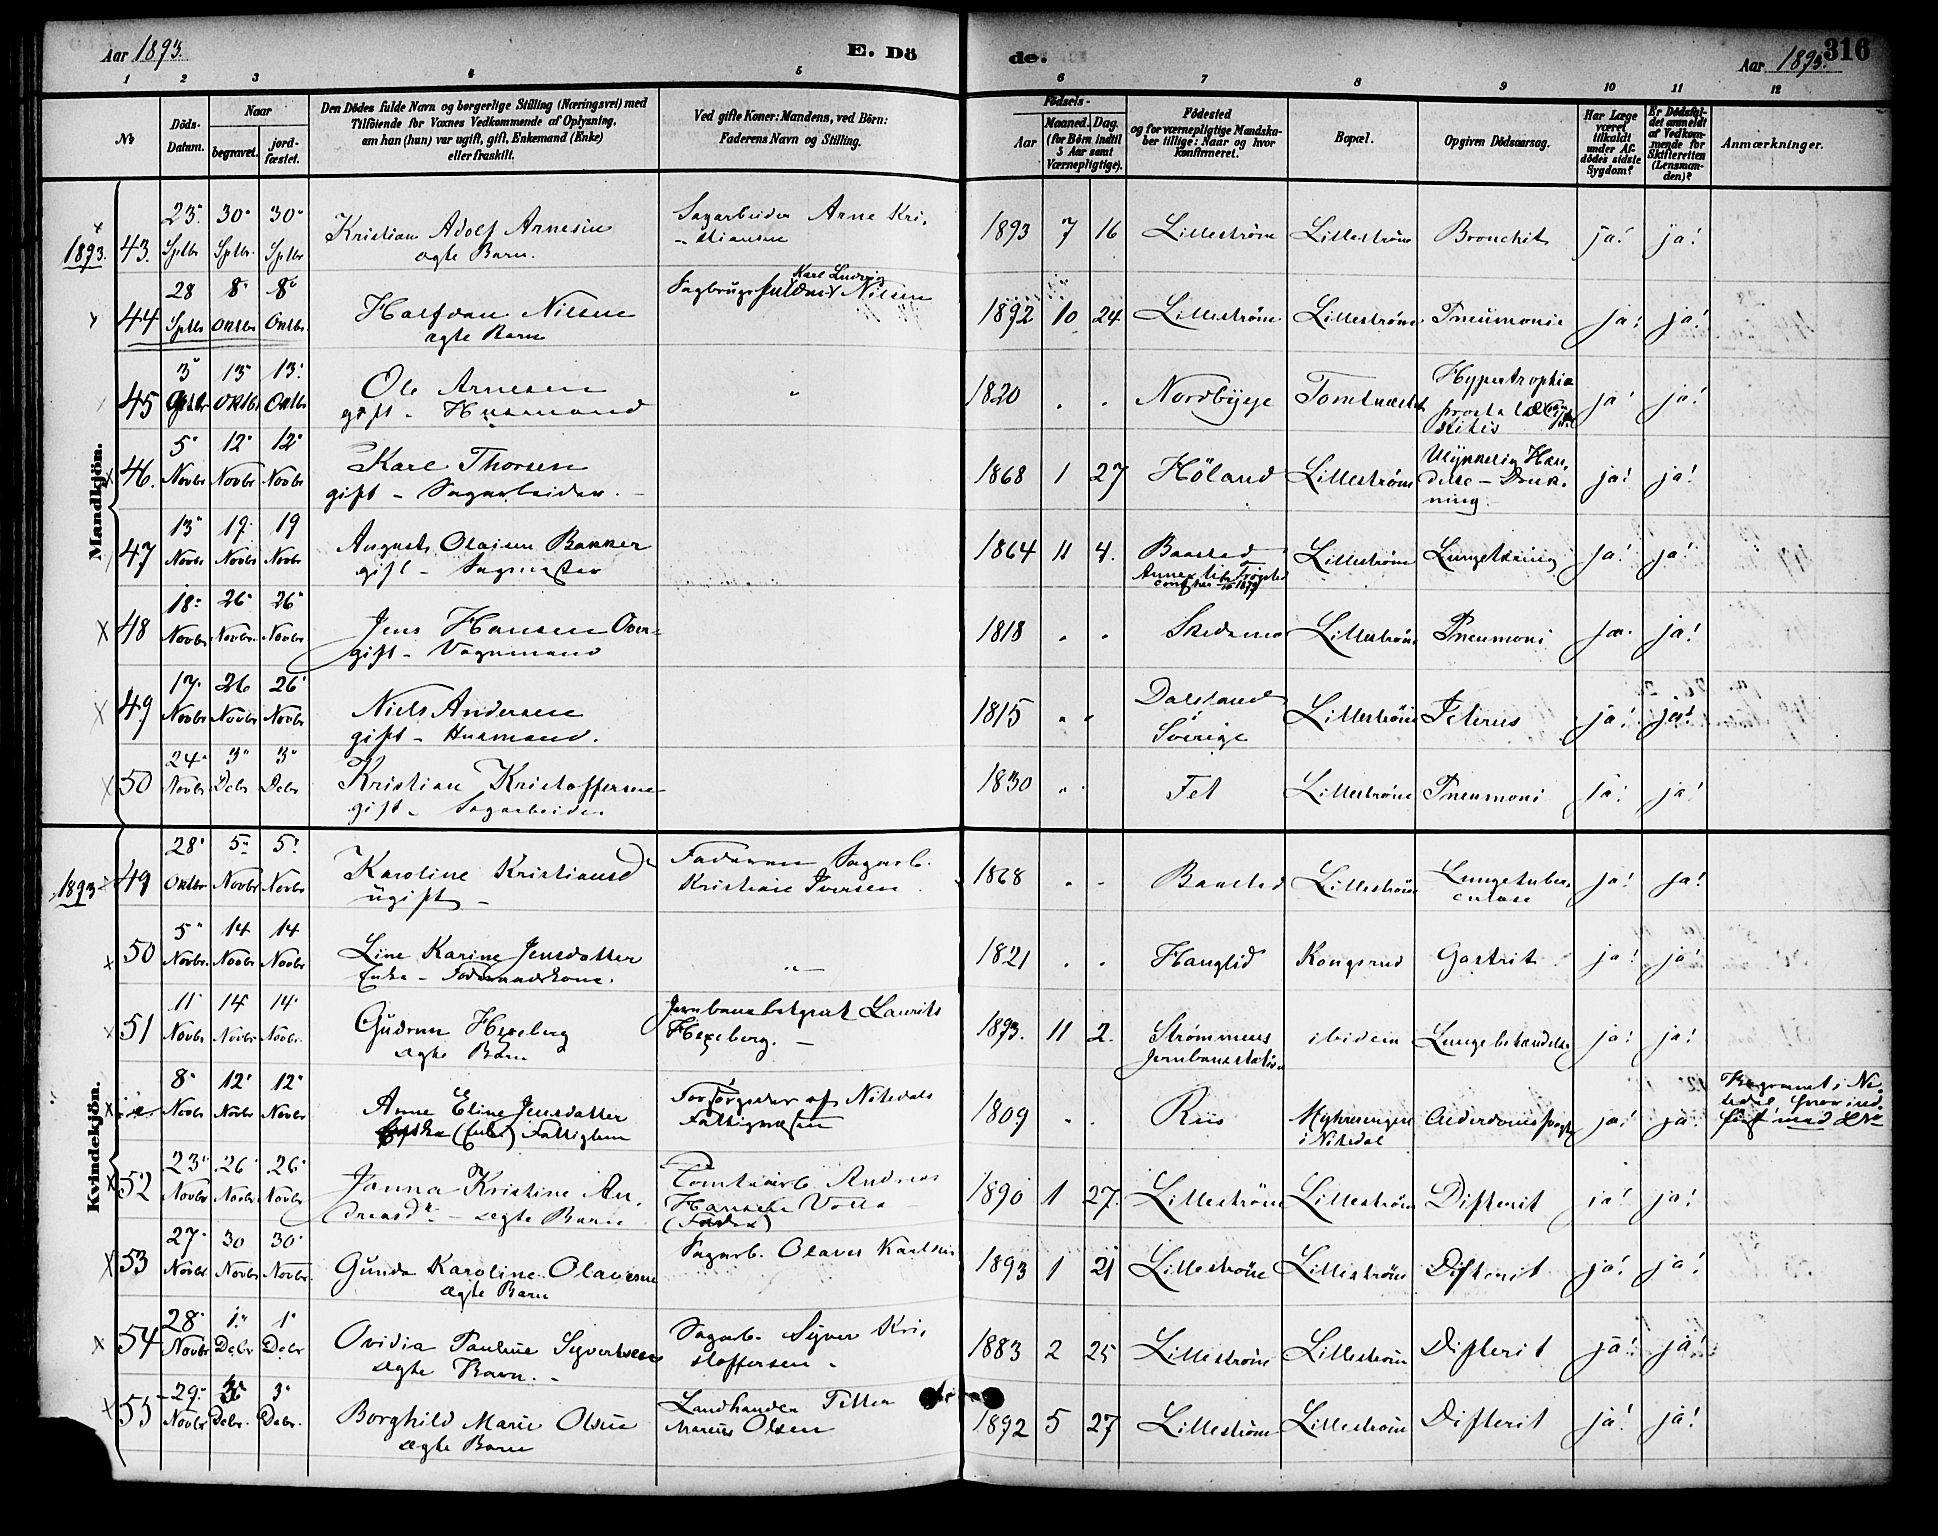 Aar 1893.
E. Dö
de.
Aar 1893.
316
1 2 3 4 5 6 7 8 9 10 11 12
No
Döds-
Datum.
Naar
begravet.
jord-
fæstet.
Den Dödes fulde Navn og borgerlige Stilling (Næringsvei) med
Tilföiende for Voxnes Vedkommende af Oplysning,
om han (hun) var ugift, gift, Enkemand (Enke)
eller fraskilt.
Ved gifte Koner: Mandens, ved Börn:
Faderens Navn og Stilling.
Födsels-
Aar
Maaned. Dag.
(for Börn indtil
5 Aar samt
Værnepligtige).
Födested
og for værnepligtige Mandska-
ber tillige: Naar og hvor
konfirmeret.
Bopæl.
Opgiven Dödsaarsag.
Har Læge
været
tilkaldt
under Af-
dödes sidste
Sygdom?
Er Dödsfal-
det anmeldt
af Vedkom-
mende for
Skifteretten
(Lensman-
den)?
Anmærkninger.
Mandkjön.
1893.
43. 23. Sptbr 30. Sptbr. 30. Sptbr
Kristian Adolf Arnesen
ægte Barn.
Sagarbeider Arne Kri-
stiansen
1893 7 16 Lillestrøm Lillestrøm Bronchit ja! ja!
44 28 Sptbr 8. Oktbr 8. Oktbr
Halfdan Nilsen
ægte Barn
Karl Ludvig
Nilsen
1892 10 24 Lillestrøm Lillestrøm Pneumonie ja! ja!
45 3 Oktbr 13 Oktbr 13. Oktbr
Ole Arnesen
gift - Husmand
1820 Nordbyeje
Hypertrophia
ja! ja!
46. 5. Novbr 12. Novbr 12. Novbr
Karl Thorsen
gift - Sagarbeider.
1868 1 27 Höland Lillestrøm
Ulykkelig Hæn-
delse - Druk-
ning.
ja! ja!
47 13. Novbr 19. Novbr 19 Novbr
August Olajsen Bakker
gift - Sagmester
1864 11 4. Baastad
Annex til Trøgstad
Lillestrøm Lungetæring ja! ja!
48 18. Novbr 26. Novbr. 26. Novbr
Jens Hansen Over-
gift - Vognmand
1818 Skedsmo Lillestrøm Pneumoni ja. ja!
49 17. Novbr 26 Novbr 26. Novbr
Niels Andersen
gift - Husmand.
1815 Dalsland
Sverige
Lillestrøm Icterus ja! ja!
50 24. Novbr 3. Debr 3. Debr
Kristian Kristoffersen
gift - Sagarbeider
1830 Fet Lillestrøm Pneumoni ja! ja!
Kvindekjön.
1893
49 28. Oktbr 5. Novbr 5. Novbr
Karoline Kristiansd
ugift -
Faderen Sagarb.
Kristian Iversen
1868 Baastad Lillestrøm
Lungetuber-
culose
ja! ja!
50 5. Novbr. 14 Novbr 14 Novbr
Line Karine Jensdatter
Enke - Foderaadskone.
1821 Hauglid Kongsrud Gastrit ja! ja!
51 11. Novbr 14. Novbr 14. Novbr.
Gudrun Hexeberg
ægte Barn
Jernbanebetjent Laurits
Hexeberg.
1893. 11 2. Strømmens
Jernbanestation
ibidem ja! ja!
8. Novbr 12. Novbr 12. Novbr
Anne Eline Jensdatter
(Enke) Fattiglem
Forsørgedes af Nitedals
Fattigvæsen
1809 Riis
i Nitedal
Alderdomssvaghed
ja! ja!
Begravet i Ni-
tedal
52 23. Novbr 26. Novbr 26. Novbr
Janna Kristine An-
dreasdr. - ægte Barn
Tomtearb. Andreas
Hansen Volla
(Fader)
1890 1 27. Lillestrøm Lillestrøm Difterit ja! ja!
53 27. Novbr 30 Novbr 30. Novbr.
Gunda Karoline Olavesen
ægte Barn
Sagarb. Olaves Karlsen
1893 1 21 Lillestrøm Lillestrøm Difterit ja! ja!
54 28. Novbr 1. Debr 1. Debr
Ovidia Pauline Syvertsen
ægte Barn. -
Sagarb. Syver Kris
stoffersen.
1883 2 25 Lillestrøm Lillestrøm Difterit ja! ja!
55 29. Novbr 3. Debr. 3. Debr.
Borghild Marie Olsen
ægte Barn
Landhandler
Marius Olsen
1892 5 27 Lillestrøm Lillestrøm Difterit ja! ja!